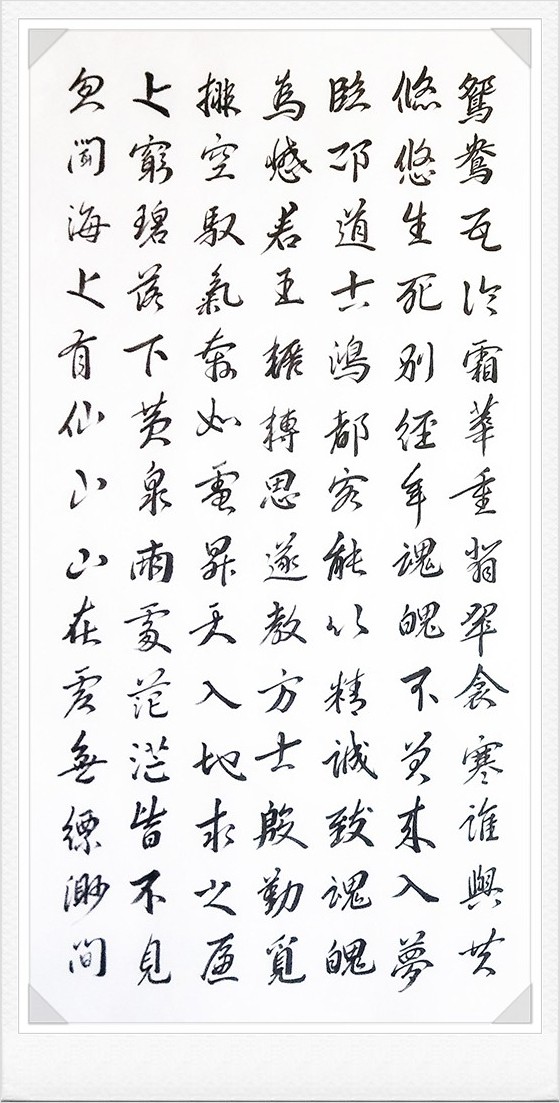 鴛鴦瓦冷霜華重翡翠衾寒誰與共
悠悠生死别經年魂魄不曾來入夢
臨邛道士鴻都客能以精誠致魂魄
為感君王輾轉思遂教方士殷勤覓
排空馭氣奔如電昇天入地求之遍
上窮碧落下黄泉兩處茫茫皆不見
忽聞海上有仙山山在虛無縹渺間